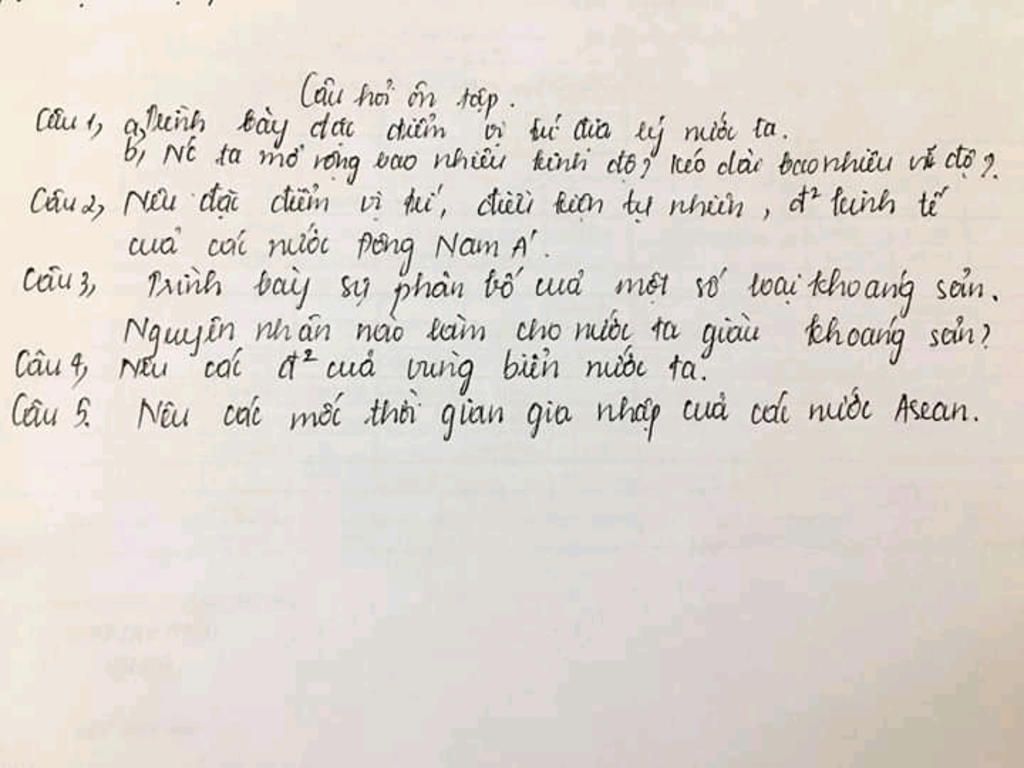 Câu hỏi ôn tập.
Câu 1, a, Trình bày đặc điểm vị trí địa lý nước ta.
b, Nc ta mở rộng bao nhiêu kinh độ? Kéo dài bao nhiêu vĩ độ?
Câu 2, Nêu đặc điểm vị trí, điều kiện tự nhiên, đ² kinh tế
của các nước Đông Nam Á.
Câu 3, Trình bày sự phân bố của một số loại khoáng sản.
Nguyên nhân nào làm cho nước ta giàu khoáng sản?
Câu 4, Nêu các đ² của vùng biển nước ta.
Câu 5. Nêu các mốc thời gian gia nhập của các nước Asean.